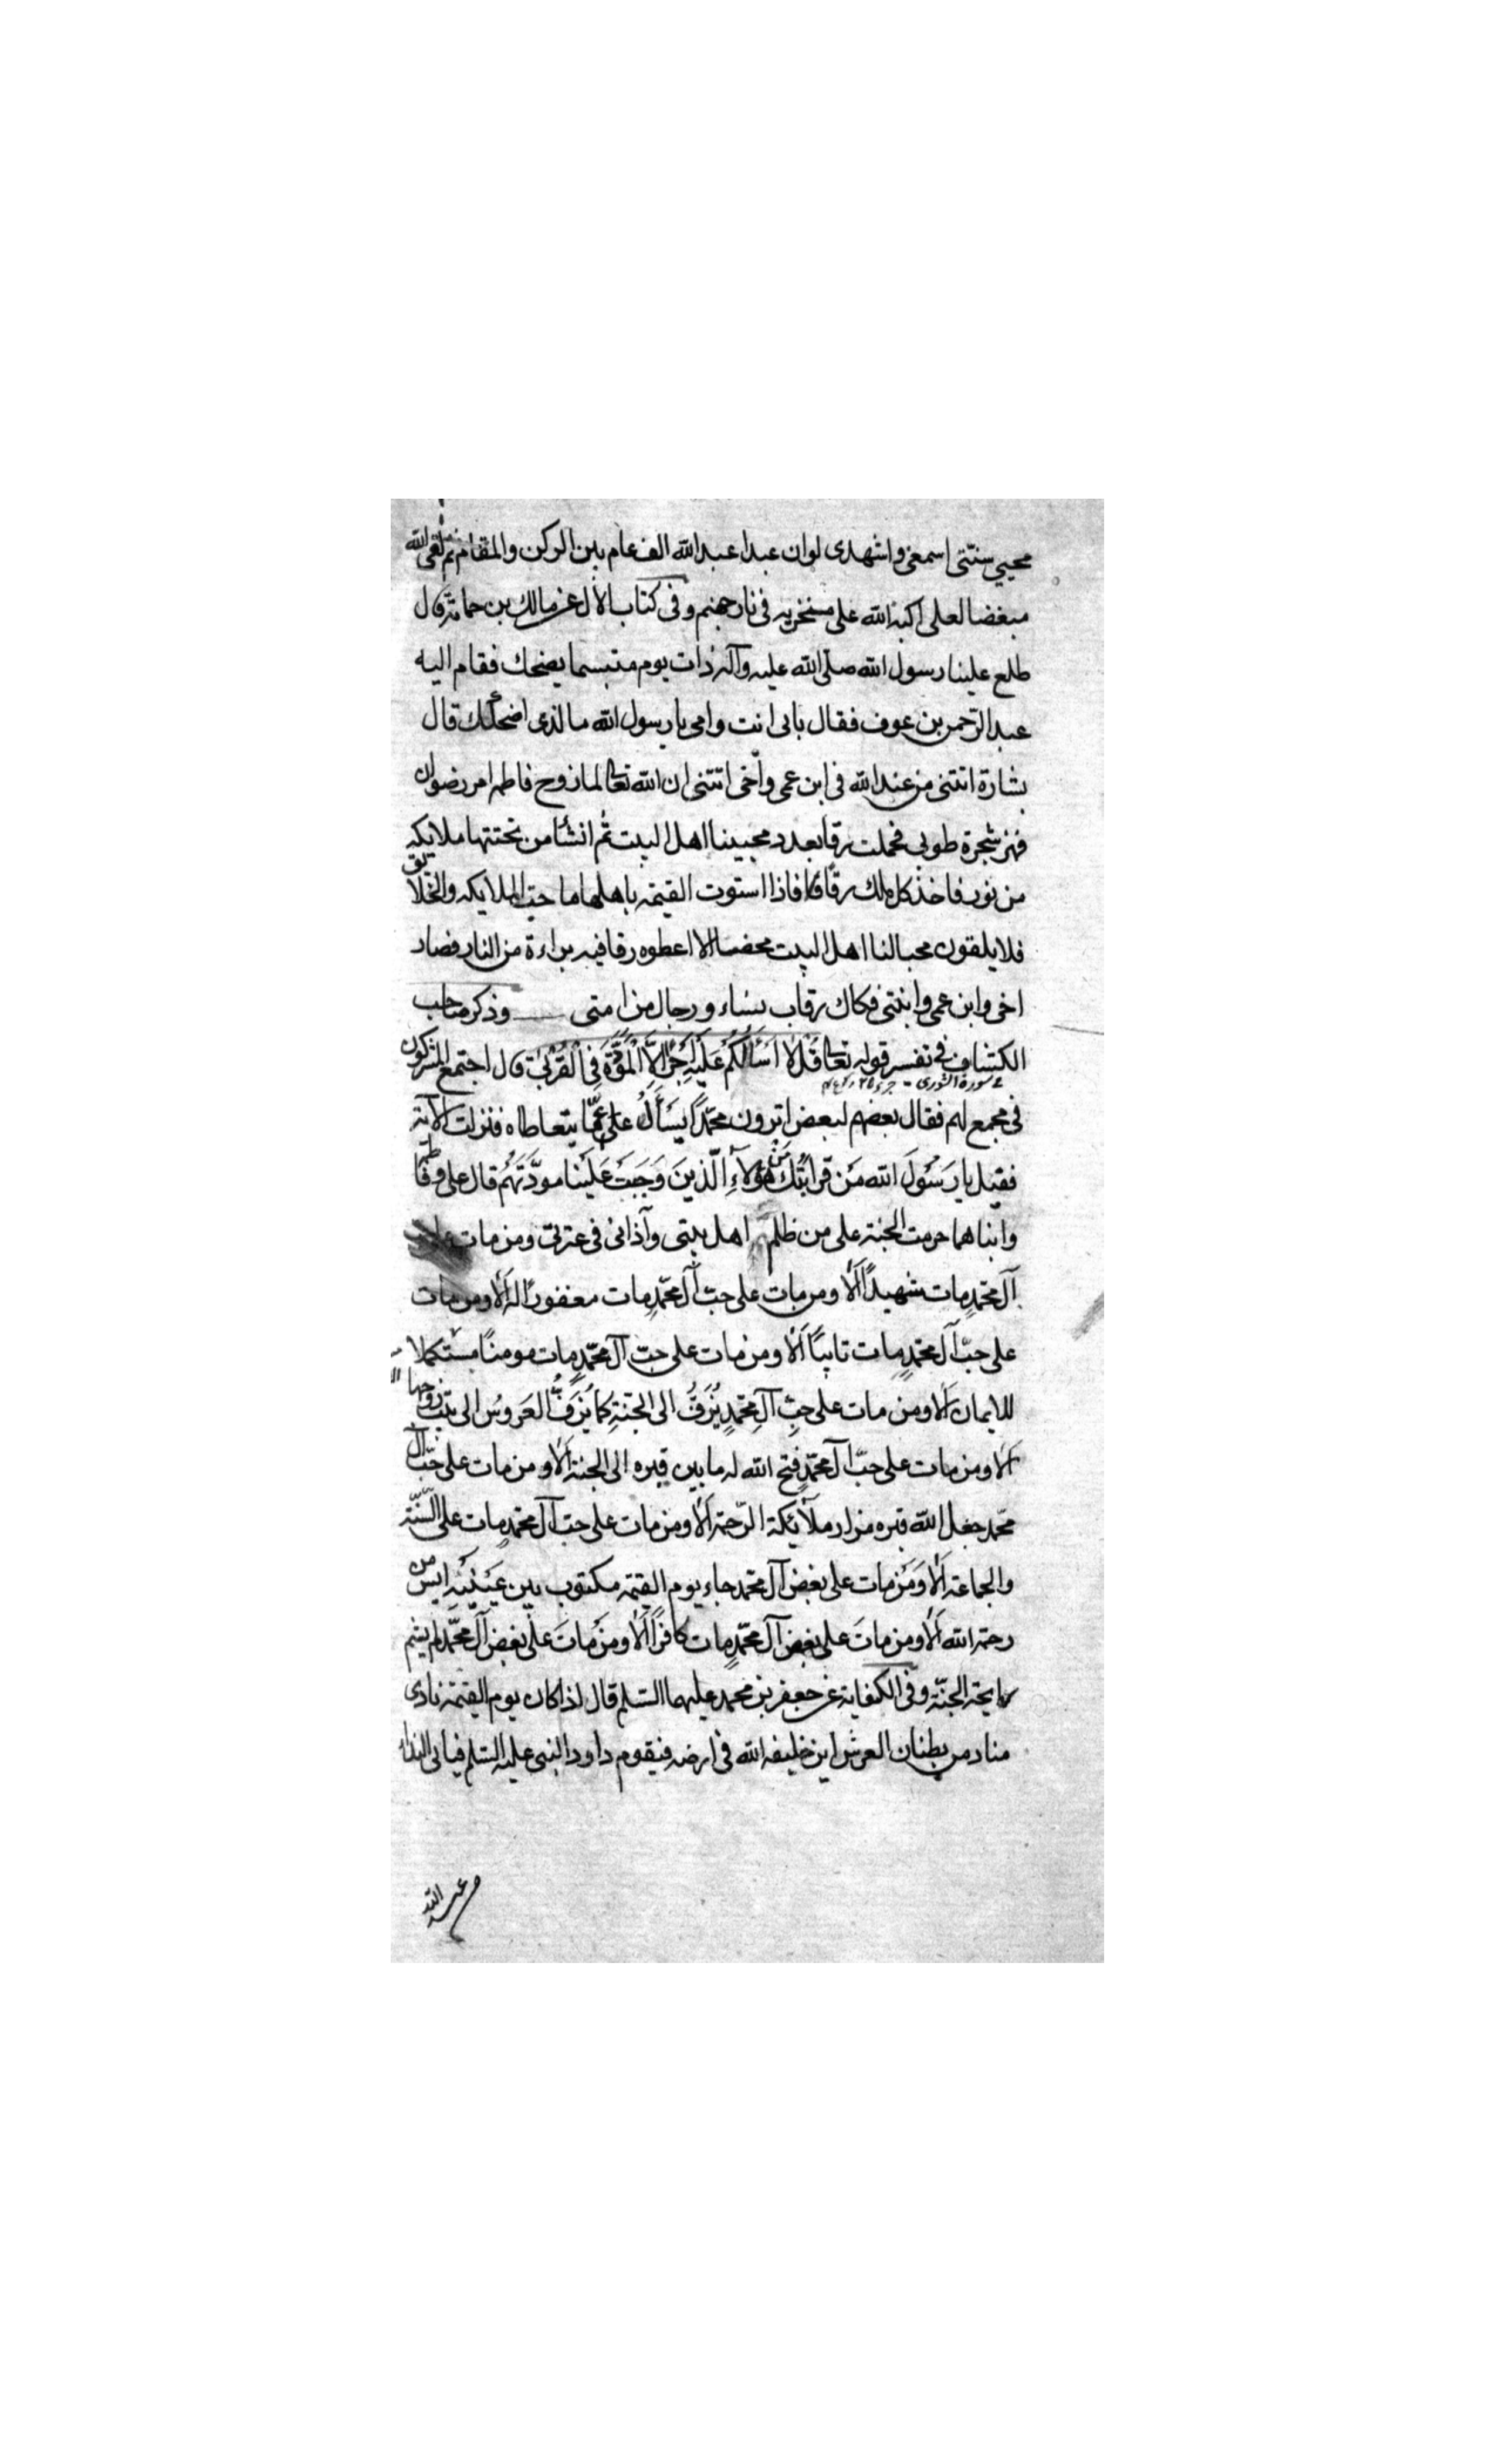 محيي سنتى اسمعى واشهدى لوان عبدا عبد الله الف عام بين الركن والمقام ثم لقى الله
مبغضا لعلى اكبه الله على منخريه فى نار جهنم وفى كتاب الآل عن مالك بن حمامة قال
طلع علينا رسول الله صلى الله عليه وآله ذات يوم متبسما يضحك فقام اليه
عبد الرحمن بن عوف فقال بابى انت وامى يا رسول الله ما الذى اضحكك قال
بشارة اتتنى من عند الله فى ابن عمى واخى اتتنى ان الله تعالى لما زوج فاطمه امر رضوان
فهز شجرة طوبى فحملت رقا بعدد محبينا اهل البيت ثم انشأ من تحتها ملايكه
من نور فاخذ كل ملك رقا فاذا استوت القيمه باهلها الملايكه والخلايق
فلا يلقون محبا لنا اهل البيت محضا الا اعطوه رقا فيه براءة من النار فصار
اخى وابن عمى وابنتى فكاك رقاب نساء ورجال من امتى وذكر صاحب
الكشاف فى تفسر قوله تعالى قُلْ لَا اَسْأَلُكُمْ عَلَيْهِ اَجْرًا اِلَّا الْمَوَدَّةَ فِى الْقُرْبٰى قال اجتمع المشركون
سورة الشورى - جزء ٢٥
فى مجمع لهم فقال بعضهم لبعض اترون محمّدًا يسأل على عمّا يتعاطاه فنزلت الآية
فقيل يا رَسُولَ الله مَن قرابتُكَ مَن هؤلاءِ الّذينَ وَجَبَتْ عَلَيْنا مودَّتهُم قال على وفاطمة
وابناهما حرمت الجنة على من ظلم اهل بيتى وآذانى فى عترتى ومن مات على
آل محمّدٍ مات شهيدًا اَلا ومن مات على حبّ آل محمّدٍ مات مغفورًا له اَلا ومن مات
على حبّ آل محمّدٍ مات تايبًا اَلا ومن مات على حبّ آل محمّدٍ مات مومنًا مستكملا
للايمان اَلا ومن مات على حبّ آلِ محمّدٍ يُزَفُّ الى الجنّةِ كما يُزَفُّ العَروسُ الى بيت زوجها
اَلا ومن مات على حبّ آل محمّدٍ فتح الله له ما بين قبره الى الجنة اَلا ومن مات على حبّ آل
محمّد جعل الله قبره مزار ملآئكة الرّحمة اَلا ومن مات على حبّ آل محمّدٍ مات على السّنّة
والجماعة اَلا وَمَن مات على بغض آل محمّد جاء يوم القيمة مكتوب بين عَيْنَيْهِ ايس من
رحمة الله اَلا ومن ماتَ على بغض آل محمّدٍ مات كافرًا اَلا ومَن ماتَ على بغض آل محمّد لم يشم
رايحة الجنّة وفى الكفاية عن جعفر بن محمد عليهما السلم قال اذا كان يوم القيمة نادى
مناد من بطنان العرش اين خليفة الله فى ارضه فيقوم داود النبى عليه السلم فياتى النداء